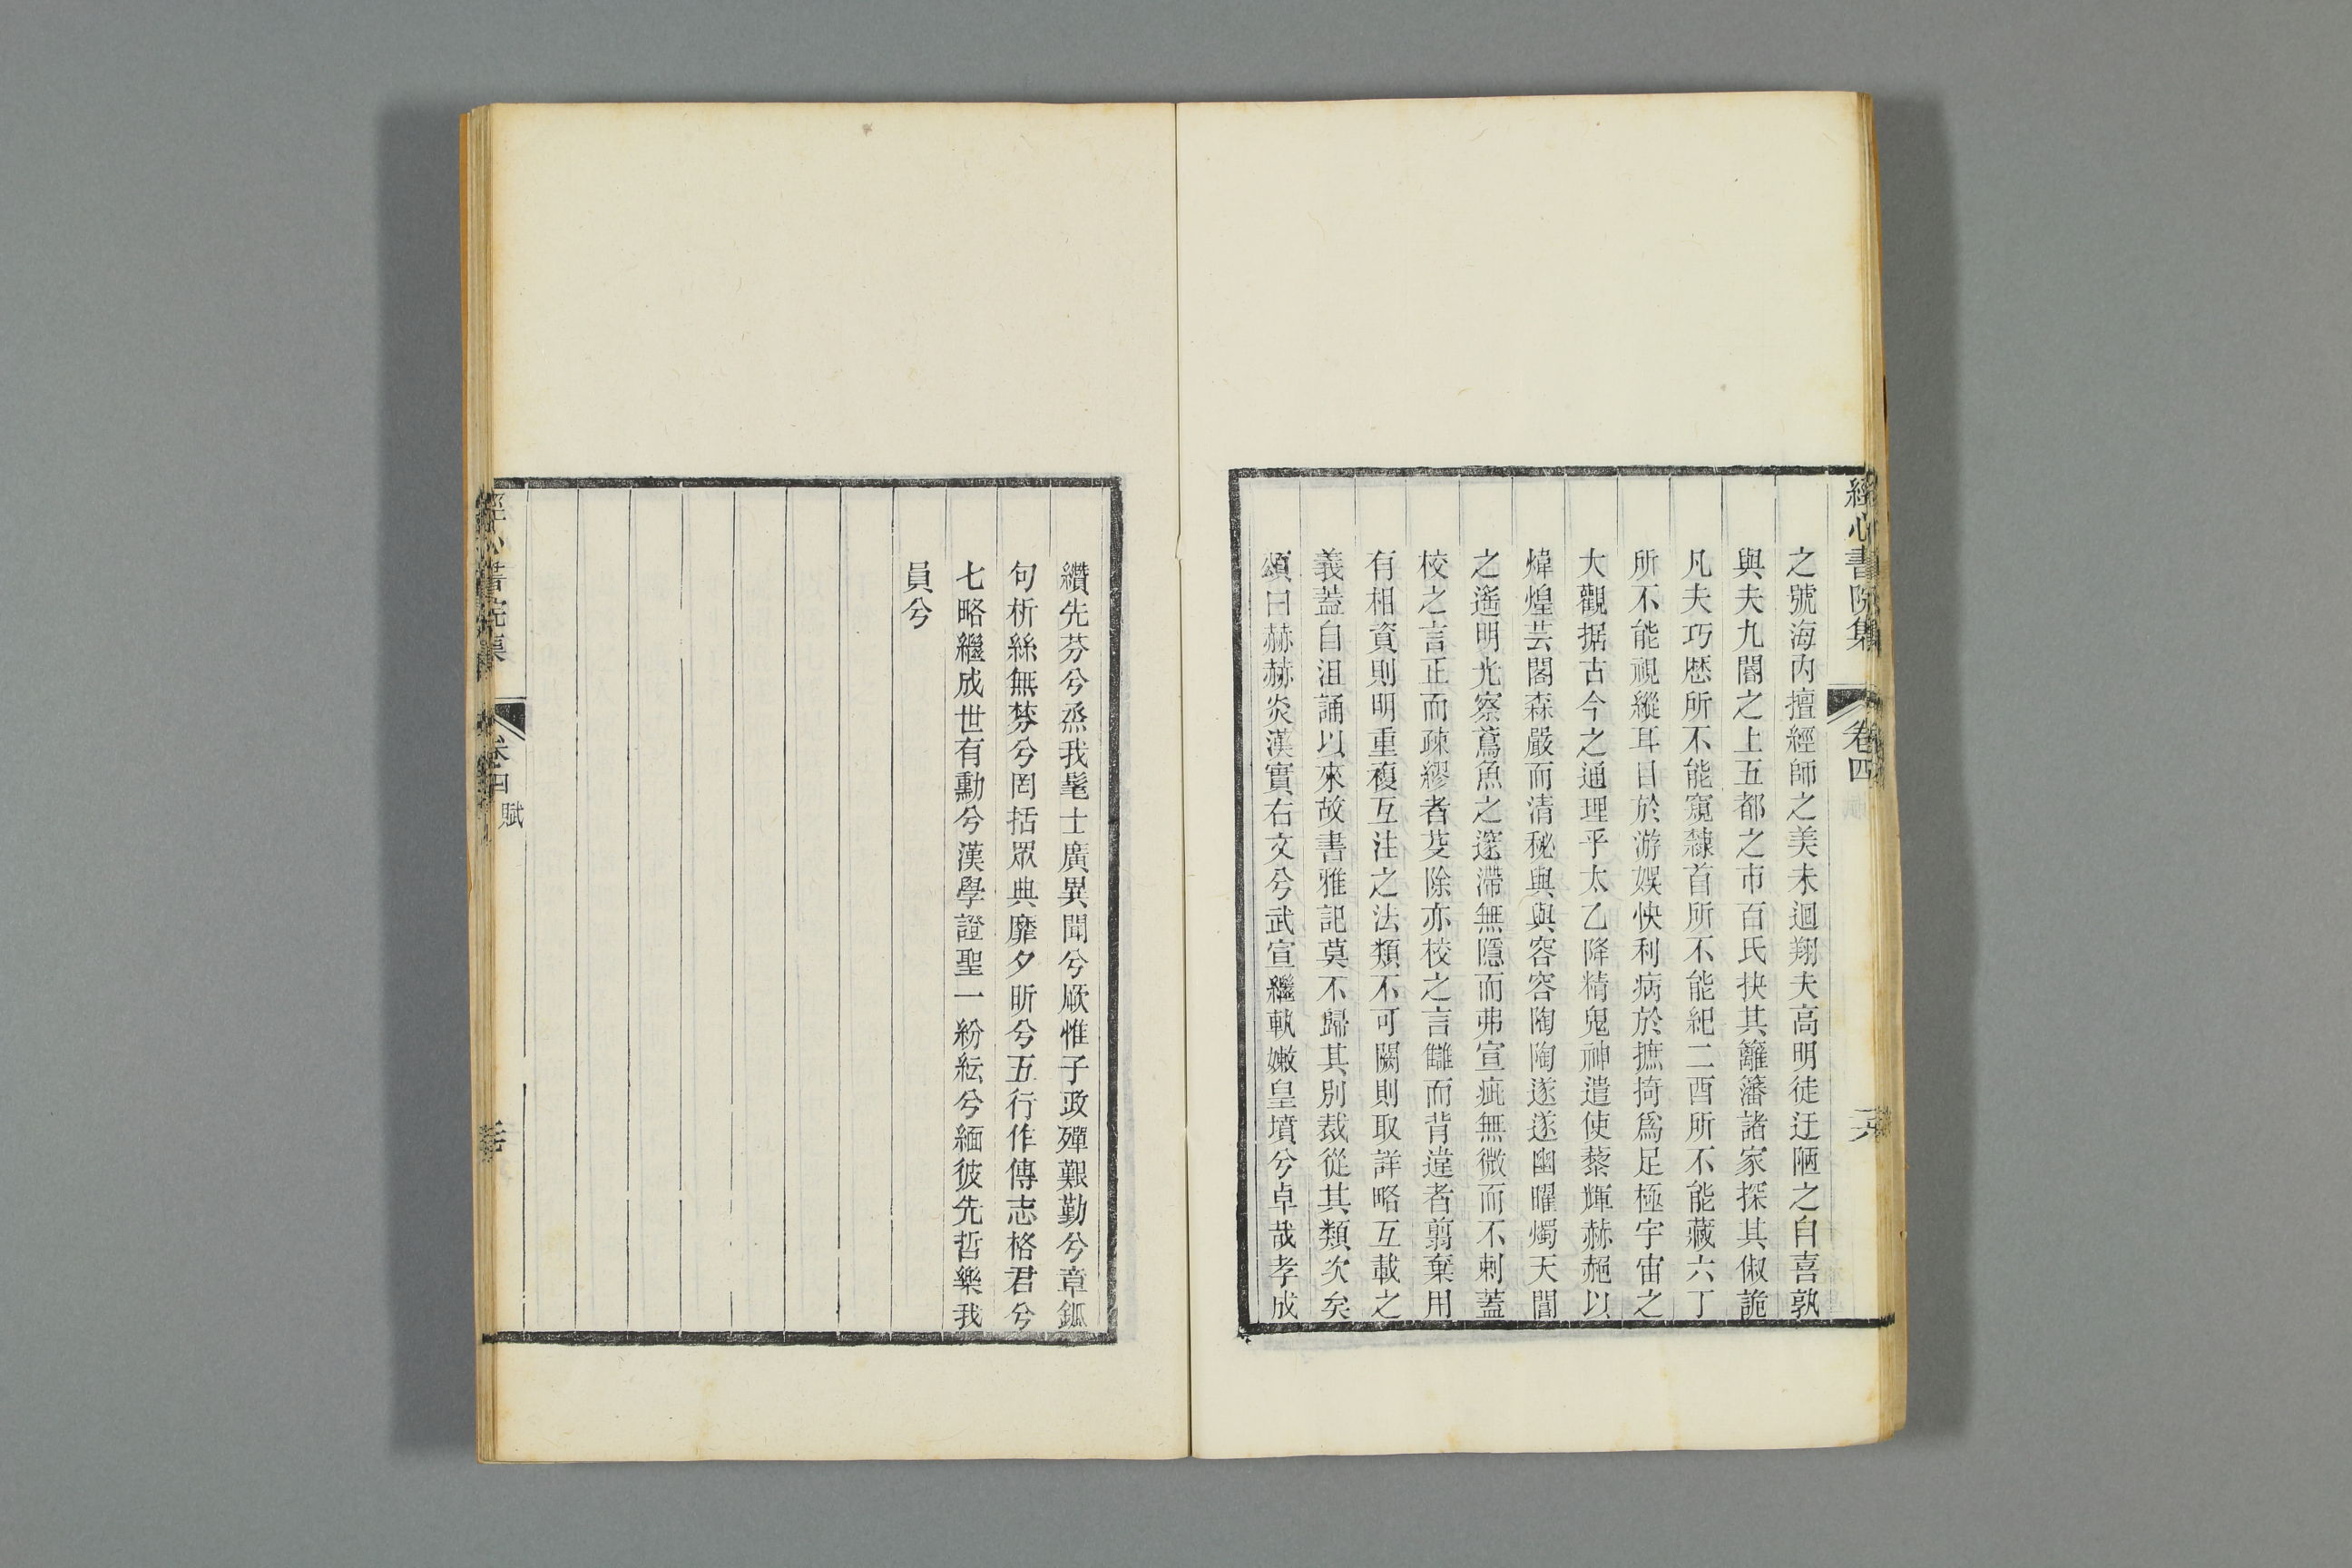 經心書院集 卷四 賦
之號海內擅經師之美未迴翔夫高明徒迂陋之自喜孰
與夫九閽之上五都之市百氏抉其籬籓諸家探其俶詭
凡夫巧歴所不能窺隸首所不能紀二酉所不能藏六丁
所不能視縱耳目於游娛快利病於摭掎爲足極宇宙之
大觀据古今之通理乎太乙降精鬼神遣使藜輝赫赩以
煒煌芸閣森嚴而清秘與與容容陶陶遂遂幽曜燭天間
之遙明光察蔿魚之邃滯無隱而弗宣疵無微而不刺蓋
校之言正而疎繆者芟除亦校之言讎而背違者翦棄用
有相資則明重複互注之法類不可闕則取詳略互載之
義蓋自沮誦以來故書雅記莫不歸其別裁從其類次矣
頌曰赫赫炎漢實右文兮武宣繼軌嫩皇墳兮卓哉孝成
纘先芬兮烝我髦士廣異聞兮厥惟子政殫艱勤兮章鈲
句析絲無棼兮囿括眾典靡夕昕兮五行作傳志格君兮
七略繼成世有勳兮漢學證聖一紛紜兮緬彼先哲樂我
員兮
經心書院集 卷四 賦